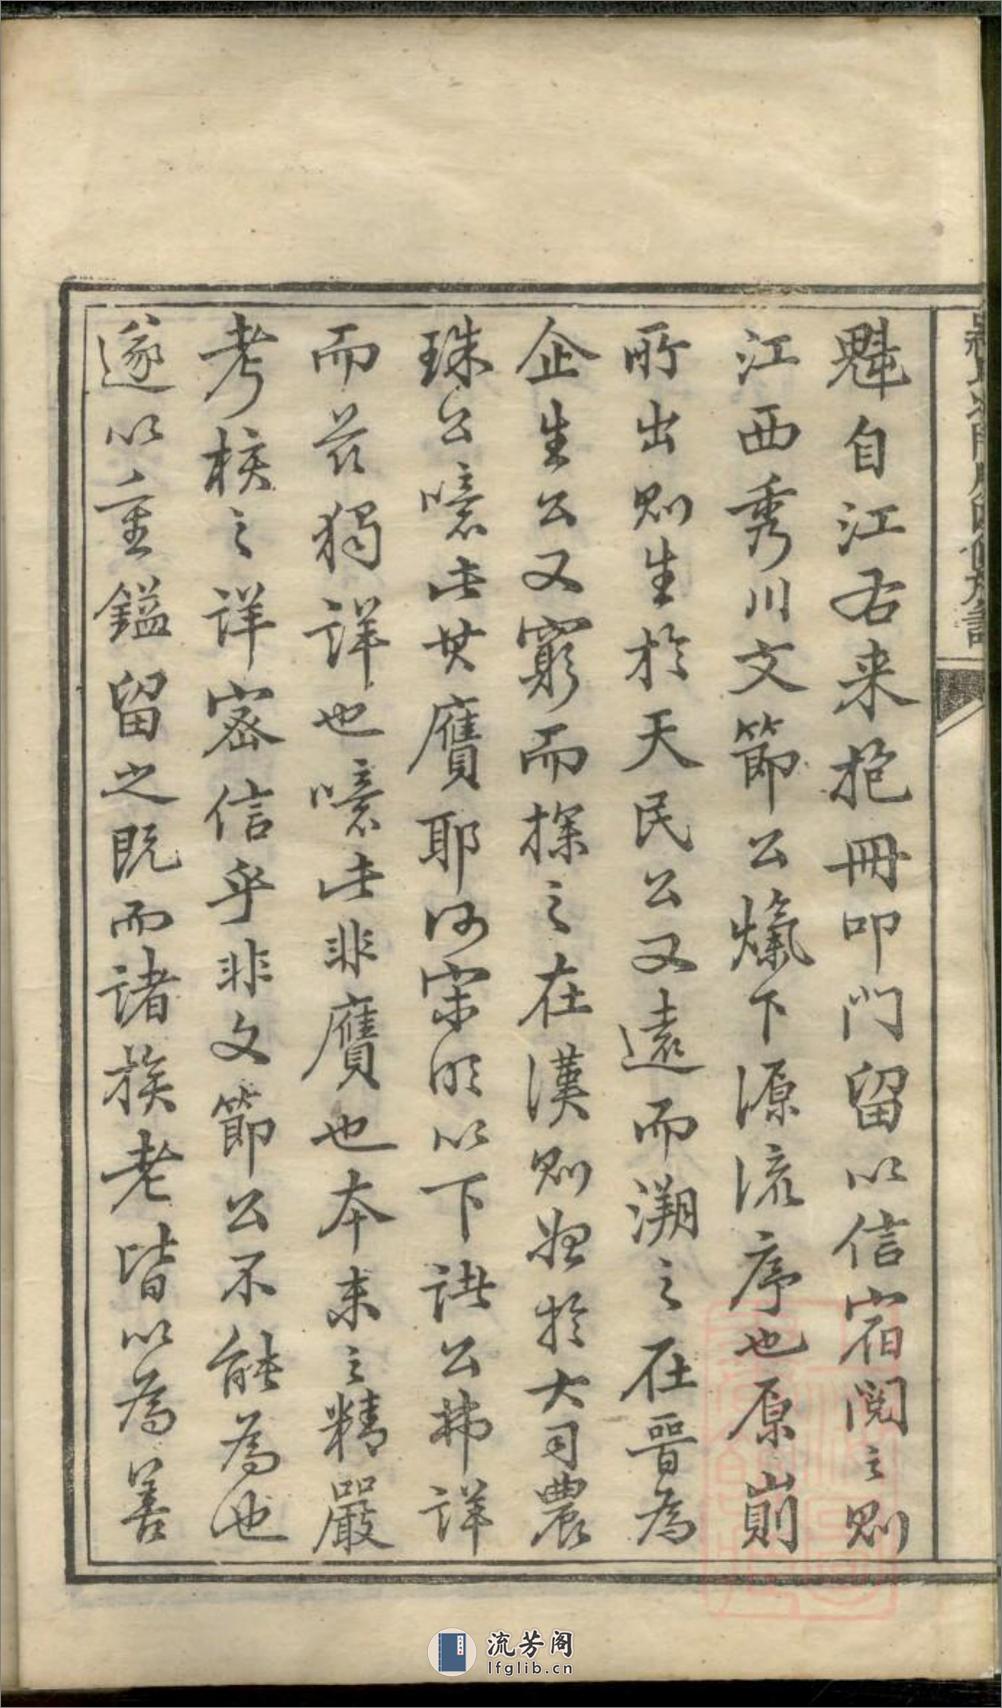 魁自江右来抱冊叩门留以信宿閱之则
江西秀川文節公爌下源流序也原崱
所出则生於天民公又遠而溯之在晉為
企生公又窮而探之在漢则始於大司農
珠公噫此其贋耶何宋明以下諸公弗詳
而兹獨詳也噫此非贋也本末之精嚴
考核之詳密信乎非文節公不能為也
遂以重鎰留之既而诸族老皆以為善
流芳阁
lfglib.cn